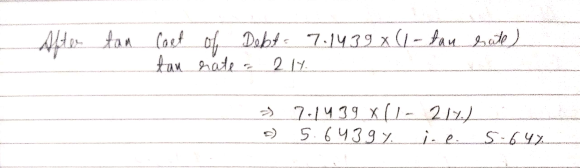 After tax Cost of Debt = 7.1439 x (1 - tax rate)
tax rate = 21%
⇒ 7.1439 x (1 - 21%)
⇒ 5.6439% i.e. 5.64%